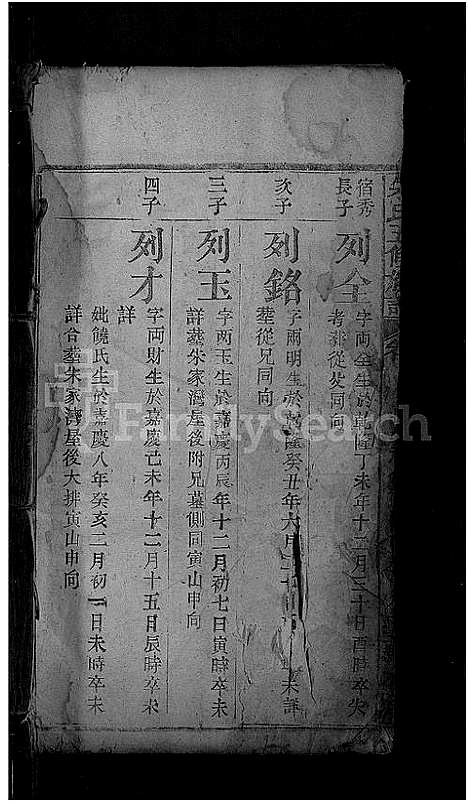 宿秀
長子
列全
字両全生於乾隆丁未年十二月三十日酉時卒失
考葬從父同向
次子
列銘
字両明生於乾隆癸丑年六月二十 未詳
塟從兄同向
三子
列玉
字両玉生於嘉慶丙辰年十二月初七日寅時卒未
詳塟朱家灣屋後附兄墓側同寅山申向
四子
列才
字両財生於嘉慶己未年十二月十五日辰時卒未
詳
妣饒氏生於嘉慶八年癸亥二月初一日未時卒未
詳合塟朱家灣屋後大排寅山申向
FamilySearch